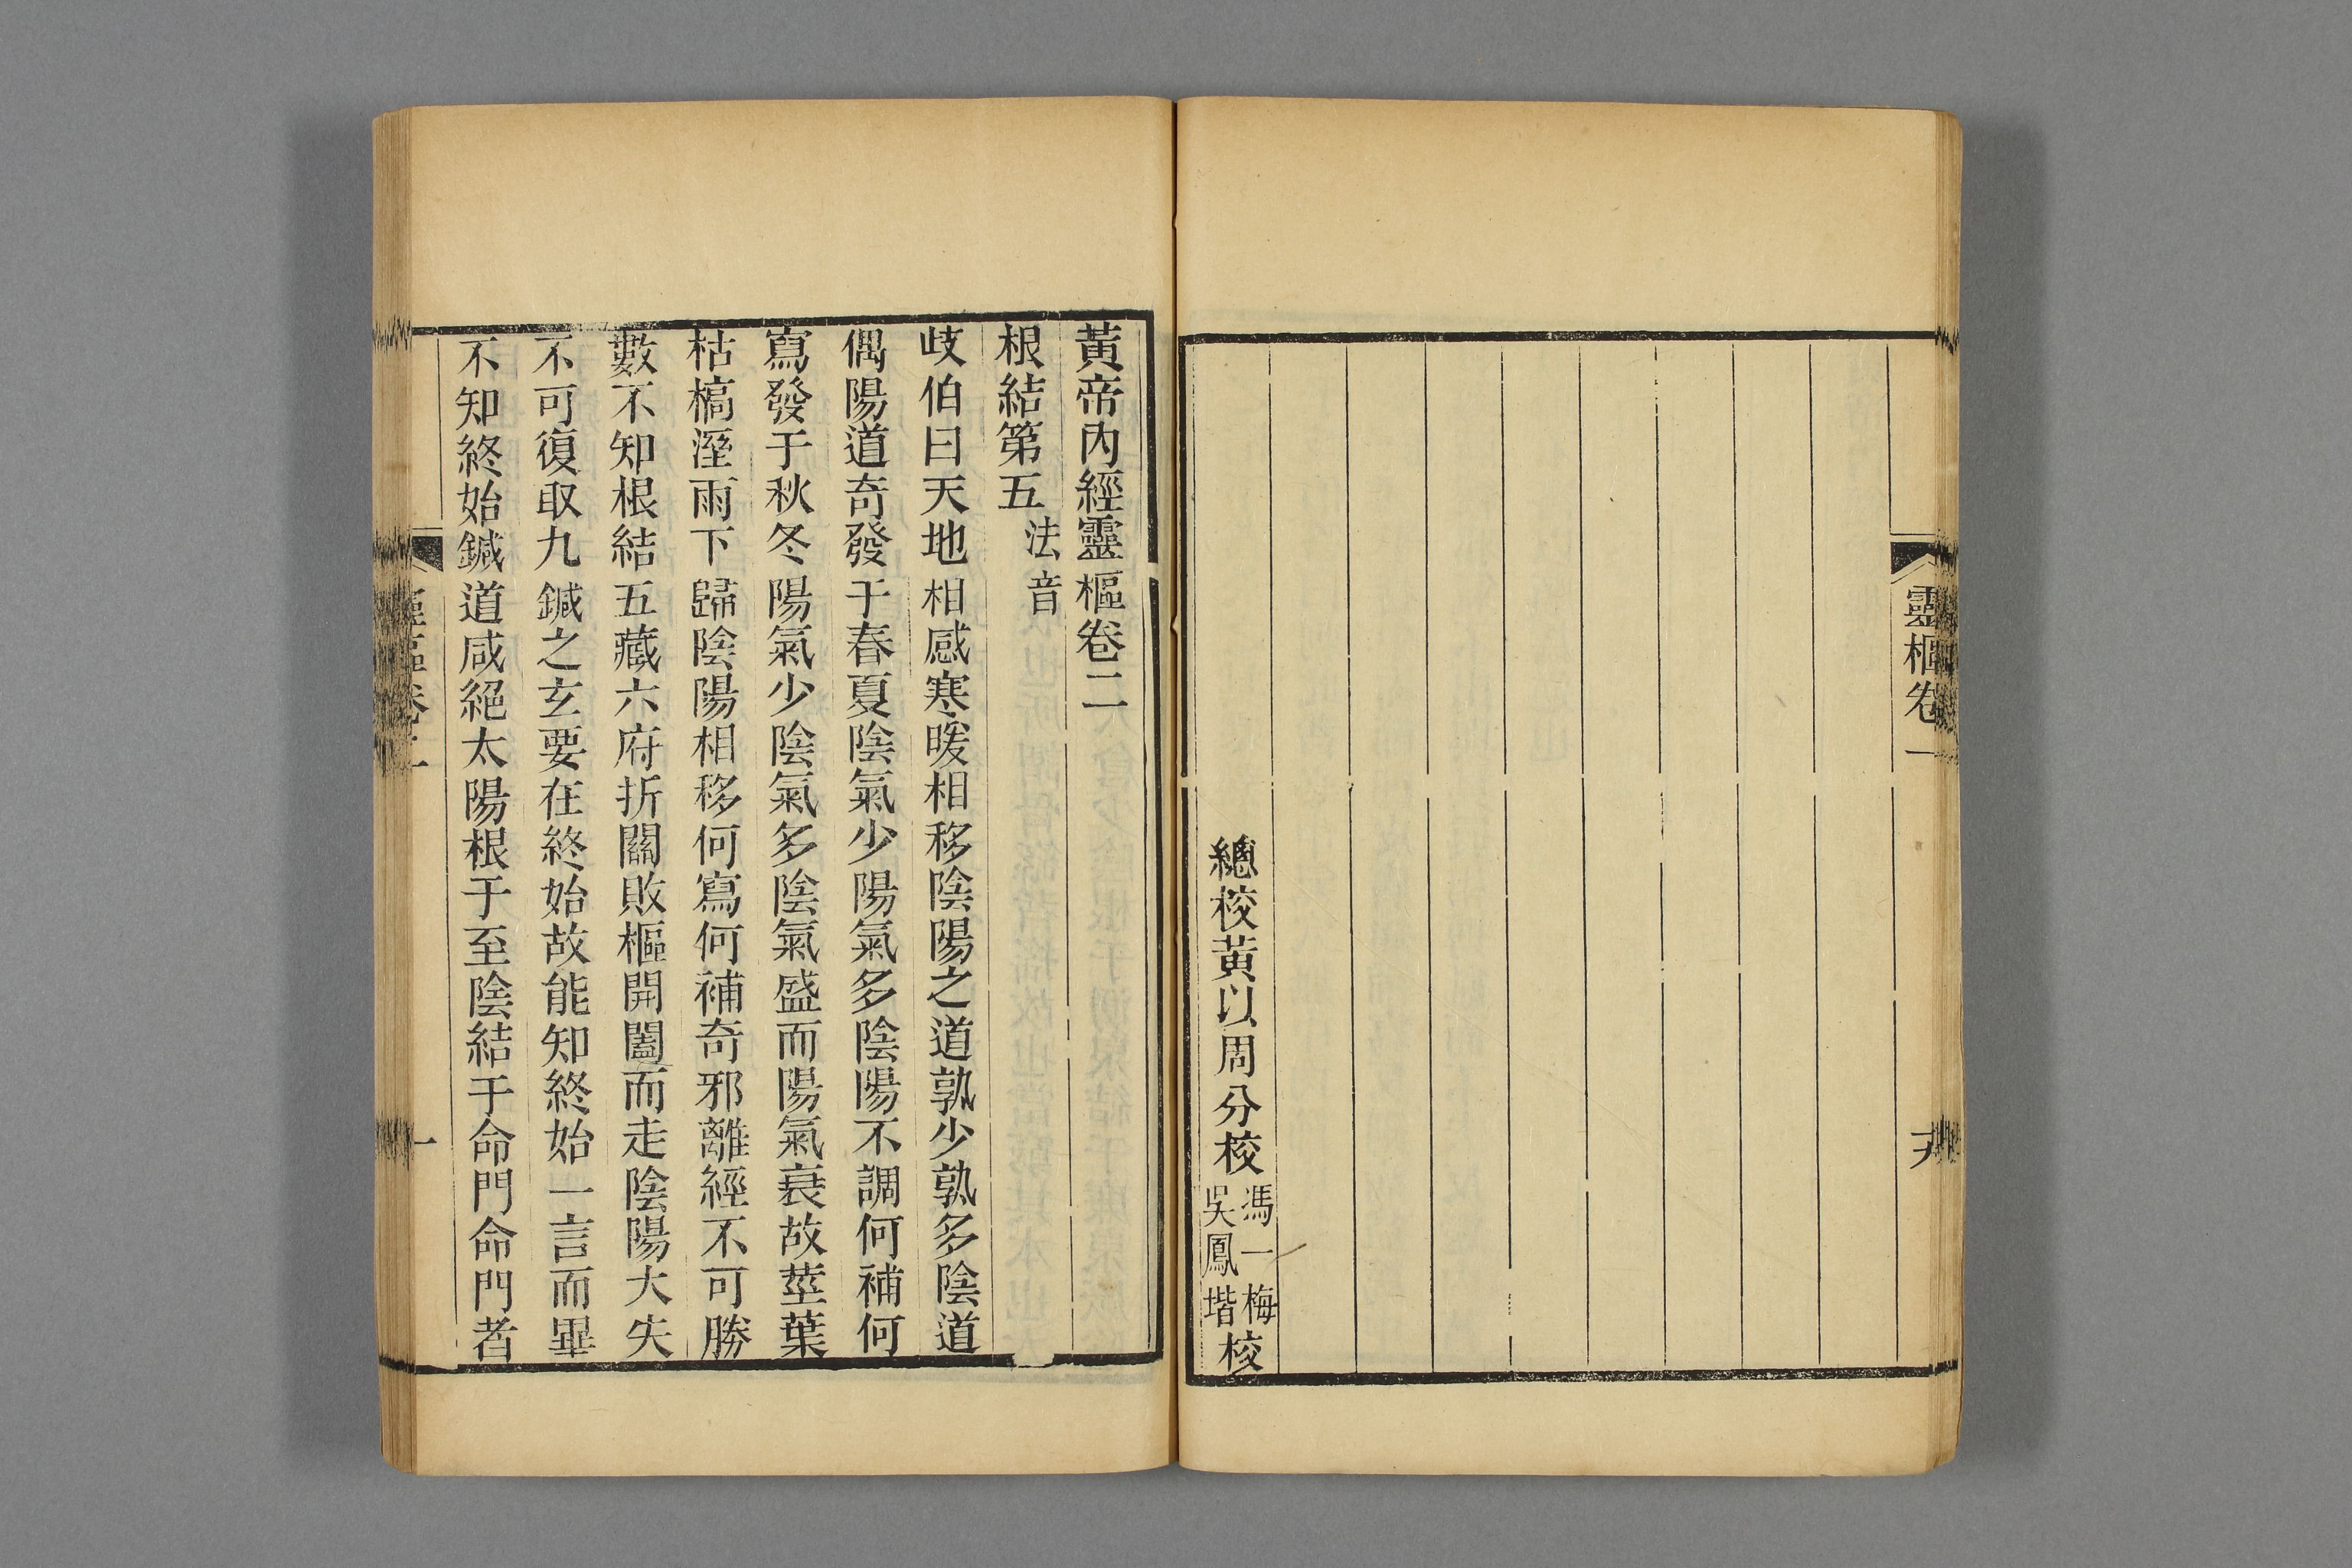 靈樞卷一
總校黃以周分校馮一梅吳鳳堦校
黃帝內經靈樞卷二
根結第五法音
歧伯曰天地相感寒暖相移陰陽之道孰少孰多陰道
偶陽道奇發于春夏陰氣少陽氣多陰陽不調何補何
寫發于秋冬陽氣少陰氣多陰氣盛而陽氣衰故莖葉
枯槁溼雨下歸陰陽相移何寫何補奇邪離經不可勝
數不知根結五藏六府折關敗樞開闔而走陰陽大失
不可復取九鍼之玄要在終始故能知終始一言而畢
不知終始鍼道咸絕太陽根于至陰結于命門命門者
靈樞卷二
一